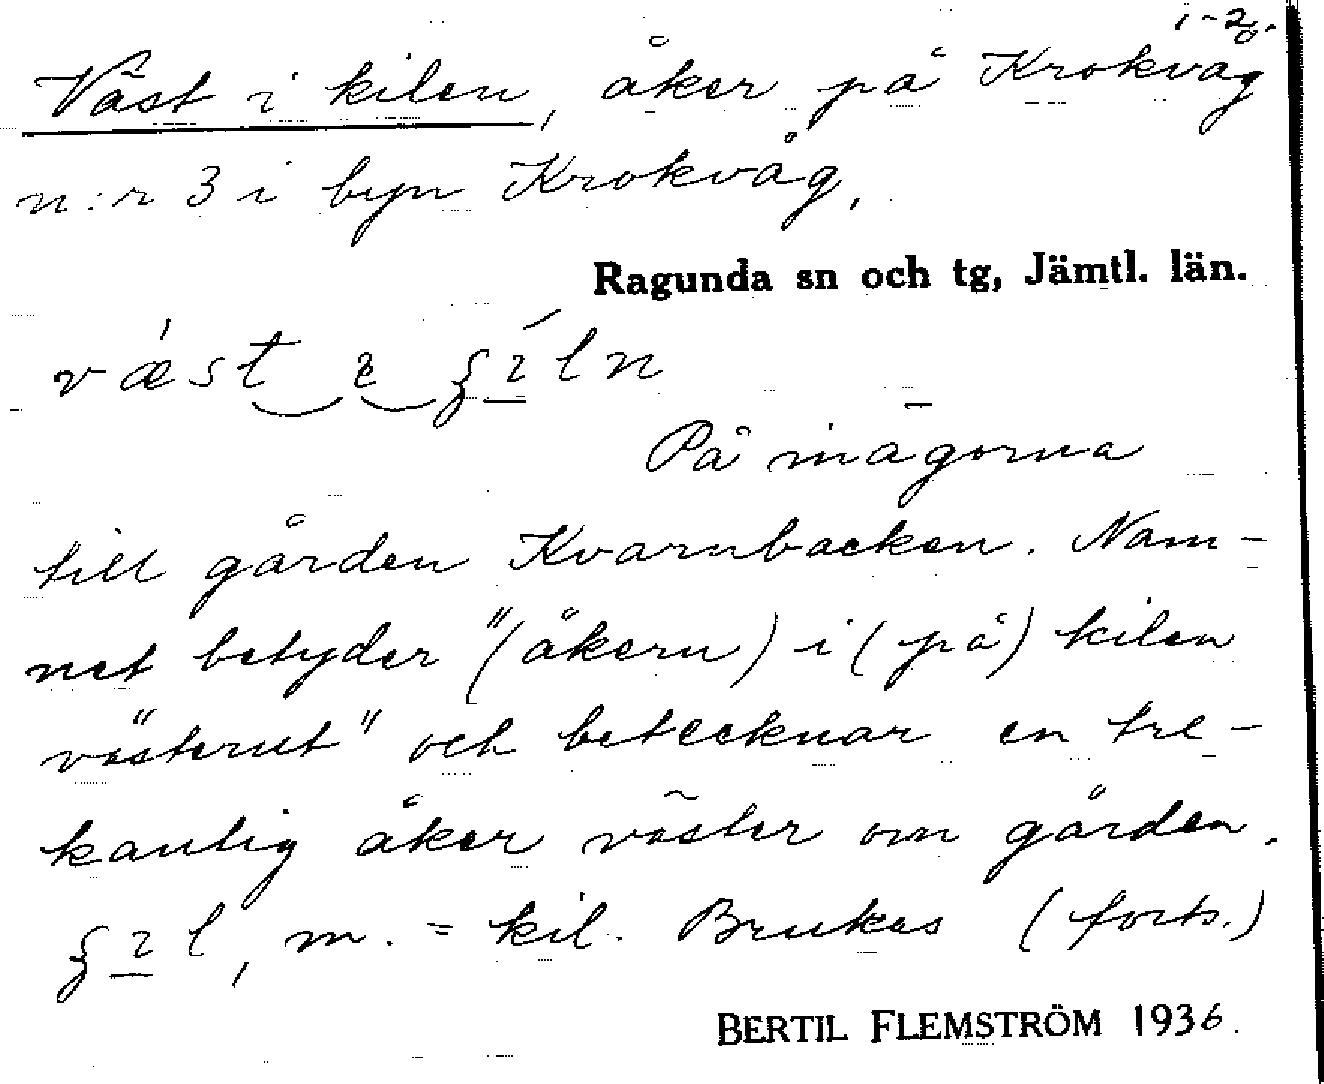 1-20.
Väst i kilen, åker på Krokvåg
n:r 3 i byn Krokvåg,
Ragunda sn och tg, Jämtl. län.
På inägorna
till gården Kvarnbacken. Nam-
net betyder "(åkern) i (på) kilen
västerut" och betecknar en tre-
kantig åker väster om gården.
m. = kil. Brukas (forts.)
BERTIL FLEMSTRÖM 1936.